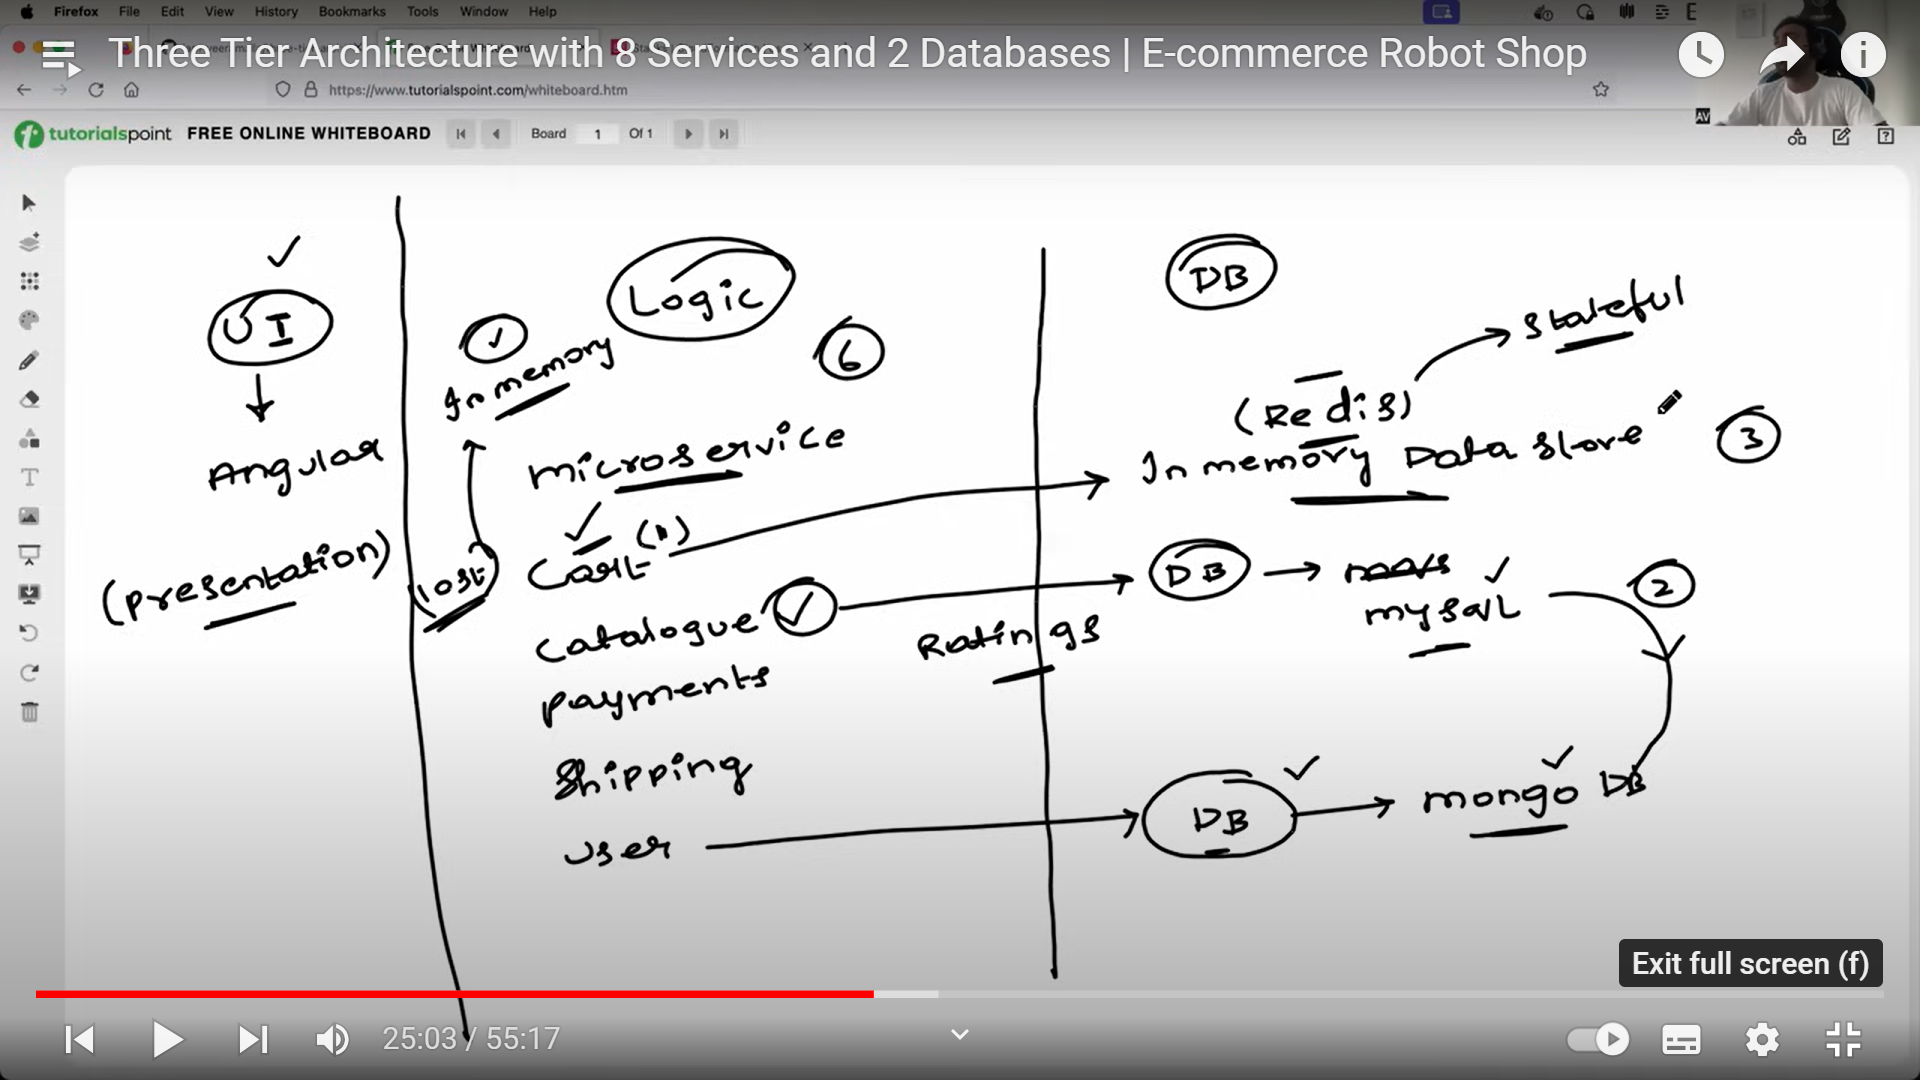 Firefox File Edit View History Bookmarks Tools Window Help
Three Tier Architecture with 8 Services and 2 Databases | E-commerce Robot Shop
https://www.tutorialspoint.com/whiteboard.htm
AV
tutorialspoint FREE ONLINE WHITEBOARD Board 1 Of 1
UI
Angular
(presentation)
Logic
6
In memory
microservice
(lost)
Cart (n)
catalogue
payments
Shipping
user
Ratings
DB
stateful
(Redis)
In memory Data store
3
DB
mysql
2
DB
mongo DB
Exit full screen (f)
25:03 / 55:17